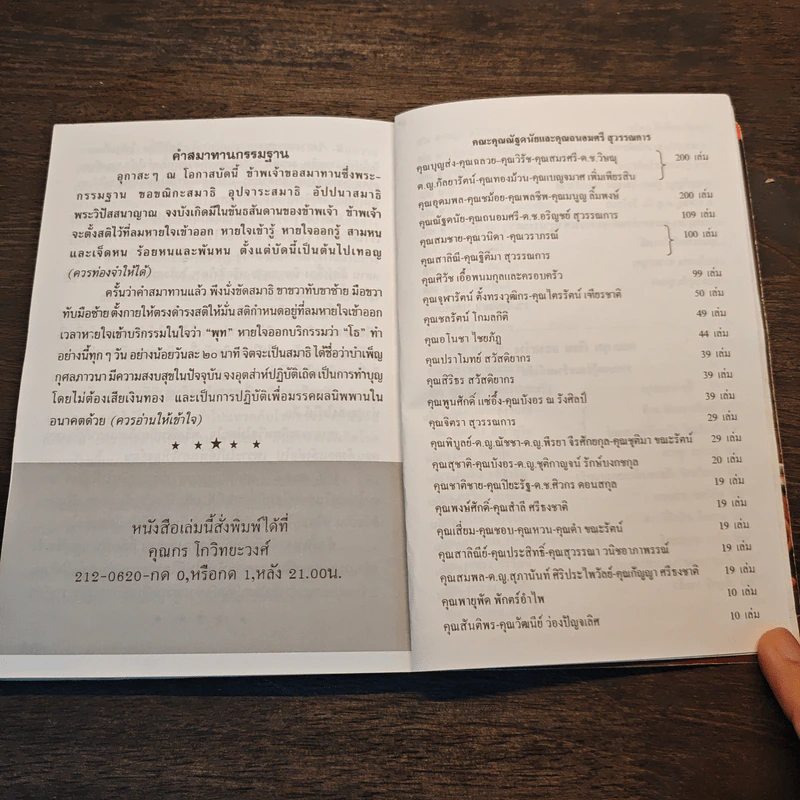 คำสมาทานกรรมฐาน
อุกาสะๆ ณ โอกาสบัดนี้ ข้าพเจ้าขอสมาทานซึ่งพระ-
กรรมฐาน ขอขณิกะสมาธิ อุปจาระสมาธิ อัปปนาสมาธิ
พระวิปัสสนาญาณ จงบังเกิดมีในขันธสันดานของข้าพเจ้า ข้าพเจ้า
จะตั้งสติไว้ที่ลมหายใจเข้าออก หายใจเข้ารู้ หายใจออกรู้ สามหน
และเจ็ดหน ร้อยหนและพันหน ตั้งแต่บัดนี้เป็นต้นไปเทอญ
(ควรท่องจำให้ได้)
ครั้นว่าคำสมาทานแล้ว พึงนั่งขัดสมาธิ ขาขวาทับขาซ้าย มือขวา
ทับมือซ้าย ตั้งกายให้ตรงดำรงสติให้มั่น สติกำหนดอยู่ที่ลมหายใจเข้าออก
เวลาหายใจเข้าบริกรรมในใจว่า “พุท” หายใจออกบริกรรมว่า “โธ” ทำ
อย่างนี้ทุกๆ วัน อย่างน้อยวันละ ๒๐ นาที จิตจะเป็นสมาธิ ได้ชื่อว่าบำเพ็ญ
กุศลภาวนา มีความสงบสุขในปัจจุบัน จงอุตส่าห์ปฏิบัติเถิด เป็นการทำบุญ
โดยไม่ต้องเสียเงินทอง และเป็นการปฏิบัติเพื่อมรรคผลนิพพานใน
อนาคตด้วย (ควรอ่านให้เข้าใจ)
หนังสือเล่มนี้สั่งพิมพ์ได้ที่
คุณกร โกวิทยะวงศ์
212-0620-กด 0,หรือกด 1,หลัง 21.00น.
คณะคุณณัฐดนัยและคุณถนอมศรี สุวรรณการ
คุณบุญส่ง-คุณถลวย-คุณวิรัช-คุณสมรศรี-ด.ช.วิษณุ
ด.ญ.กัลยารัตน์-คุณทองม้วน-คุณเบญจมาศ เพิ่มเพียรสิน 200 เล่ม
คุณอุดมพล-คุณชม้อย-คุณพลชีพ-คุณมนูญ ลิ้มพงษ์ 200 เล่ม
คุณณัฐดนัย-คุณถนอมศรี-ด.ช.อริญชย์ สุวรรณการ 109 เล่ม
คุณสมชาย-คุณวนิดา -คุณวราภรณ์
คุณสาลิณี-คุณฐิติมา สุวรรณการ 100 เล่ม
คุณศิวัช เอื้อพนมกุลและครอบครัว 99 เล่ม
คุณจุฬารัตน์ ตั้งทรงวุฒิกร-คุณไตรรัตน์ เฑียรชาติ 50 เล่ม
คุณชลรัตน์ โกมลกิติ 49 เล่ม
คุณอโนชา ไชยภัฎ 44 เล่ม
คุณปราโมทย์ สวัสดิยากร 39 เล่ม
คุณสิริธร สวัสดิยากร 39 เล่ม
คุณพูนศักดิ์ แซ่อึ้ง-คุณบังอร ณ รังศิลป์ 39 เล่ม
คุณจิตรา สุวรรณการ 29 เล่ม
คุณพิบูลย์-ด.ญ.ณัชชา-ด.ญ.พีรยา จีรศักยกุล-คุณชุติมา ขณะรัตน์ 29 เล่ม
คุณสุชาติ-คุณบังอร-ด.ญ.ชุติกาญจน์ รักษ์บงกชกุล 20 เล่ม
คุณชาติชาย-คุณปิยะรัฐ-ด.ช.ศิวกร ดอนสกุล 19 เล่ม
คุณพงษ์ศักดิ์-คุณสำลี ศรีธงชาติ 19 เล่ม
คุณเสี่ยม-คุณชอบ-คุณหวน-คุณดำ ขณะรัตน์ 19 เล่ม
คุณสาลินีย์-คุณประสิทธิ์-คุณสุวรรณา วนิชอาภาพรรณ์ 19 เล่ม
คุณสมพล-ด.ญ.สุภานันท์ ศิริประไพวัลย์-คุณกัญญา ศรีธงชาติ 19 เล่ม
คุณพายุพัด พักตร์อำไพ 10 เล่ม
คุณสันติพร-คุณวัฒนีย์ ว่องปัญจเลิศ 10 เล่ม